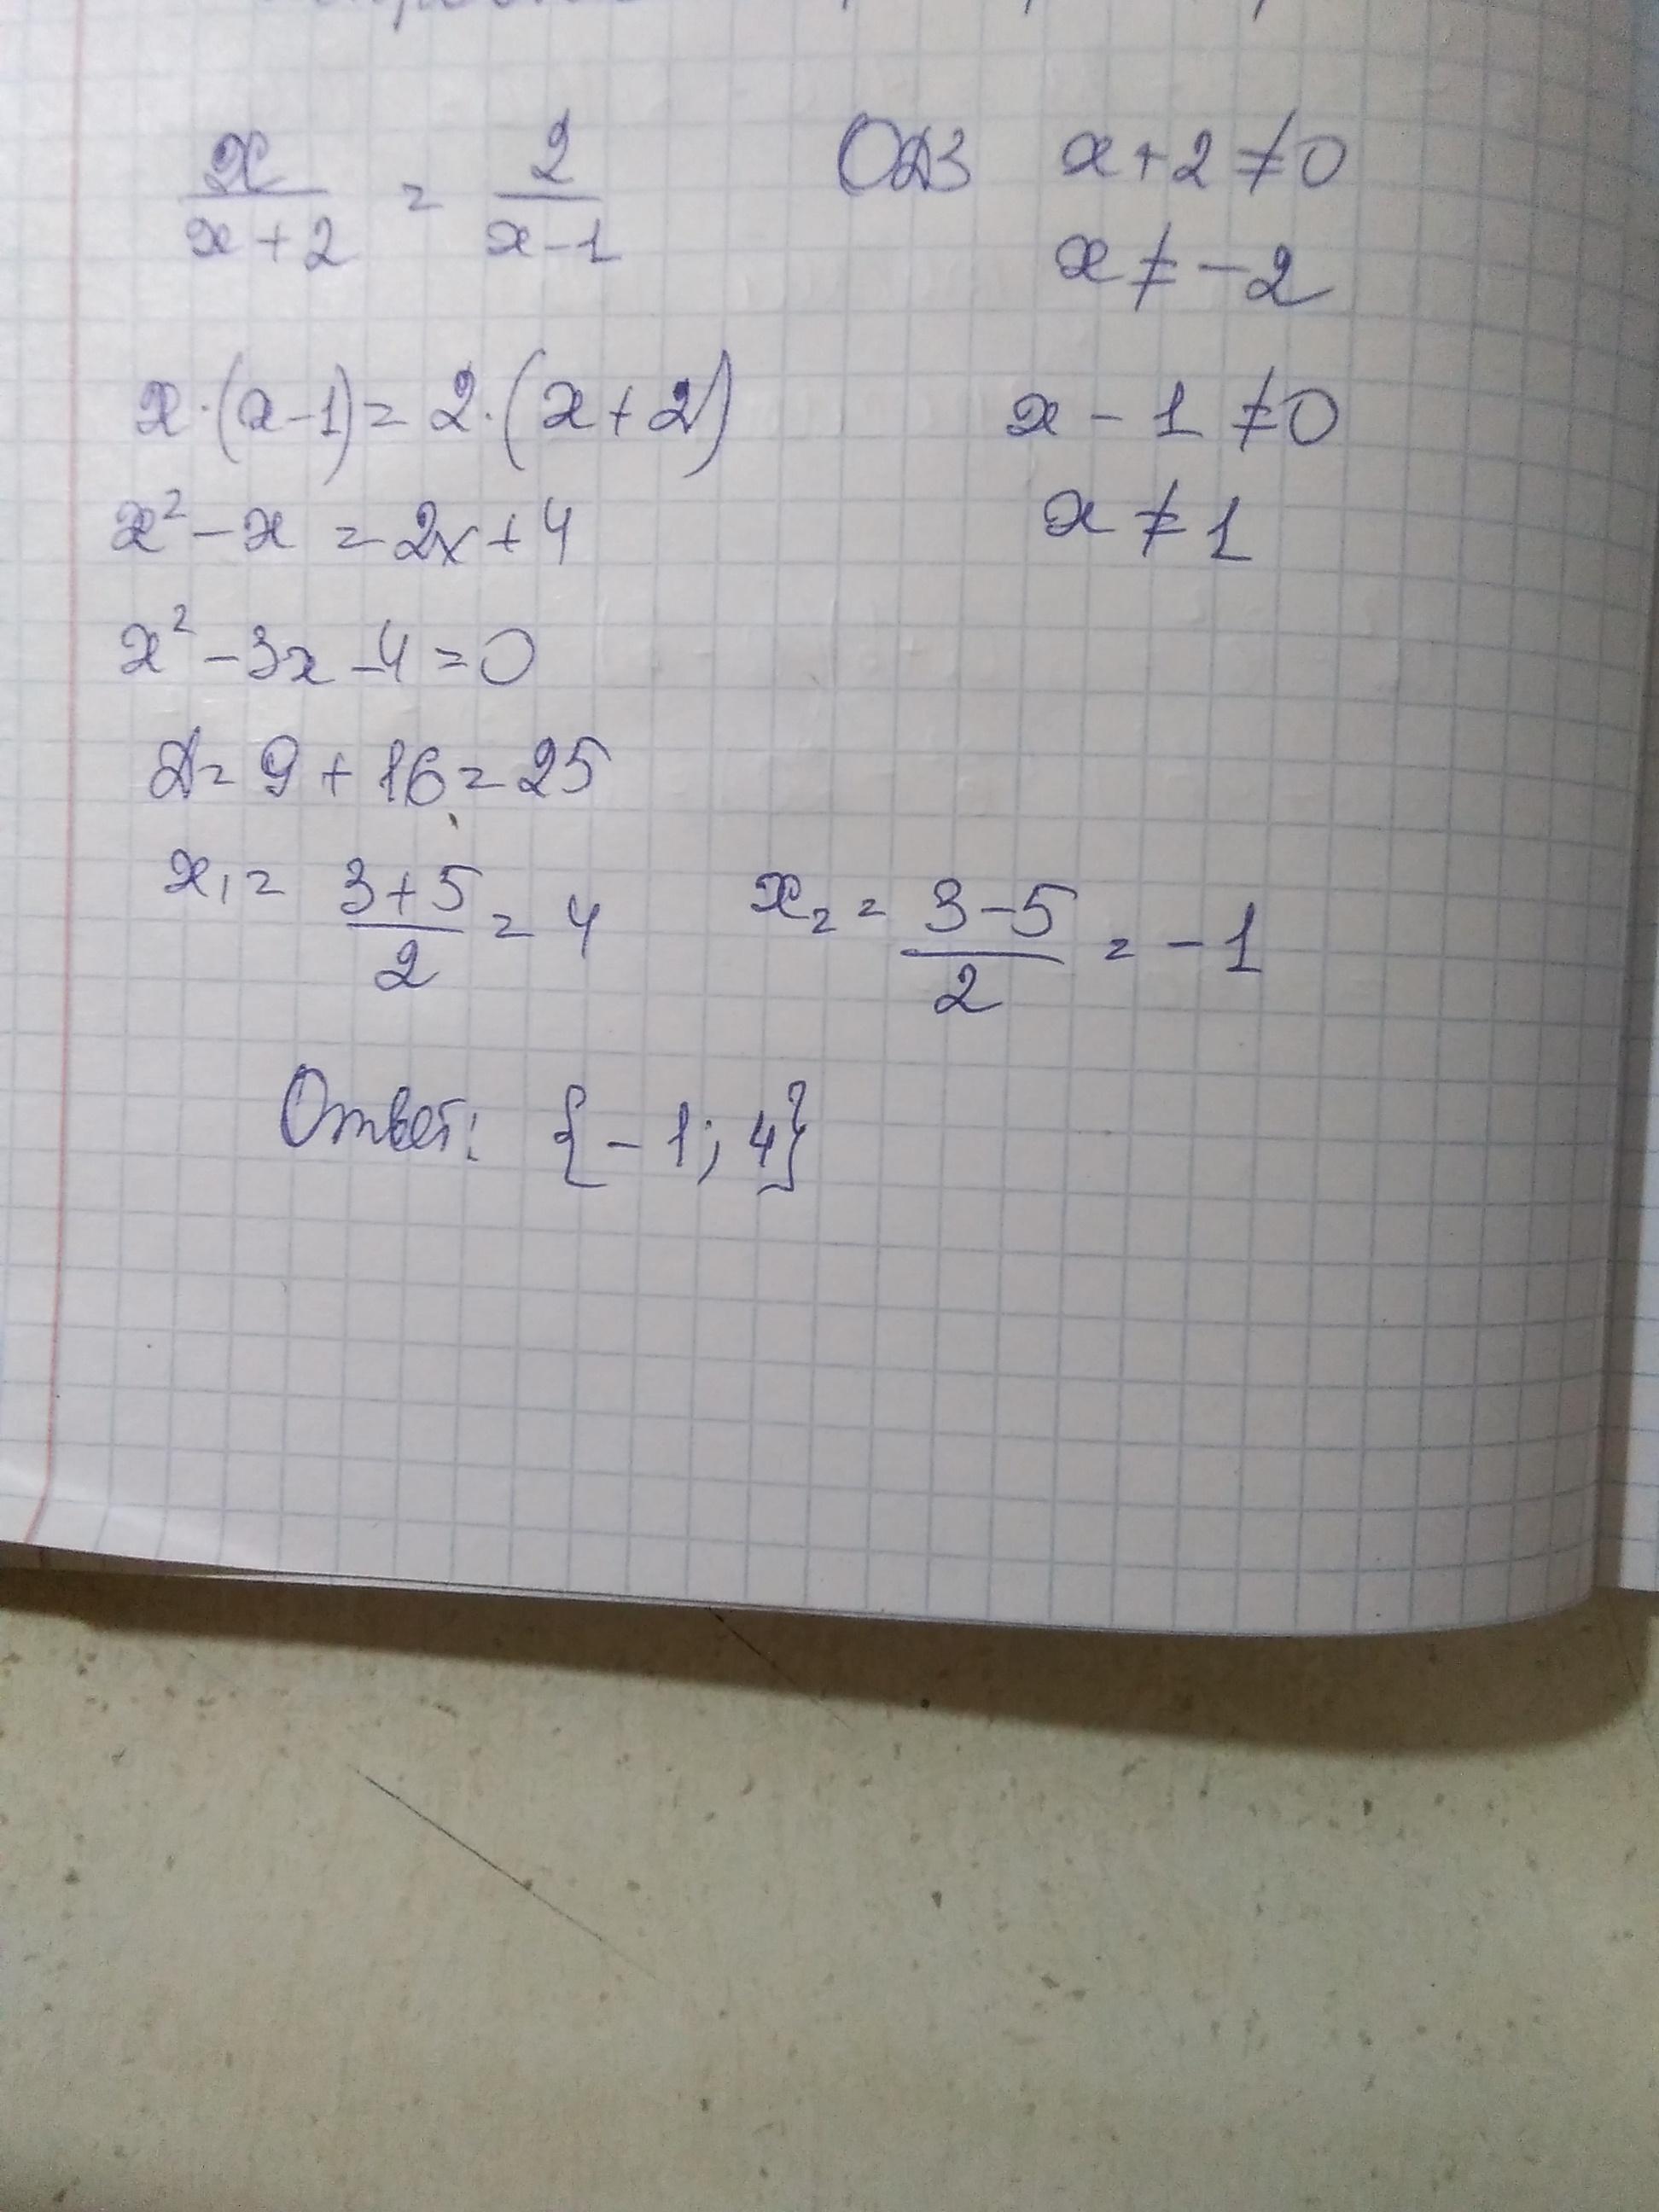 x/(x+2) = 2/(x-1) ОДЗ x+2≠0
x≠-2
x·(x-1)=2·(x+2) x-1≠0
x²-x=2x+4 x≠1
x²-3x-4=0
D=9+16=25
x₁=(3+5)/2=4 x₂=(3-5)/2=-1
Ответ: {-1;4}